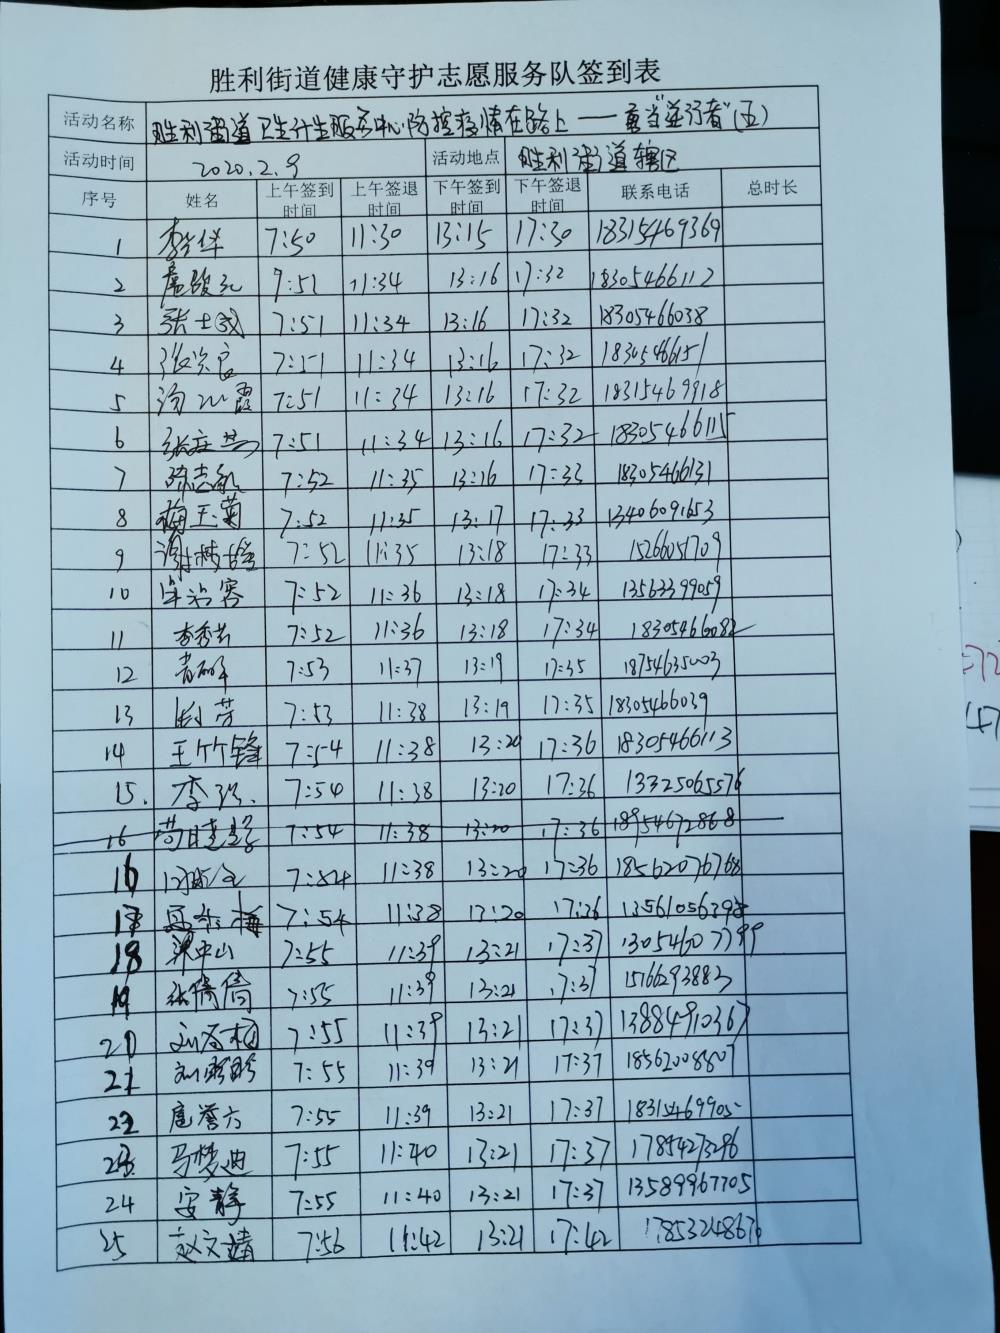 胜利街道健康守护志愿服务队签到表
活动名称 胜利街道卫生计生服务中心防控疫情在路上——勇当"逆行者"(五)
活动时间 2020.2.9 活动地点 胜利街道辖区
序号 姓名 上午签到时间 上午签退时间 下午签到时间 下午签退时间 联系电话 总时长
1 7:50 11:30 13:15 17:30 18315469369
2 7:51 11:34 13:16 17:32 18305466112
3 张士国 7:51 11:34 13:16 17:32 18305466038
4 张洪良 7:51 11:34 13:16 17:32 18305466151
5 7:51 11:34 13:16 17:32 18315469918
6 7:51 11:34 13:16 17:32 18305466115
7 陈志敏 7:52 11:35 13:16 17:33 18305466131
8 梅玉菊 7:52 11:35 13:17 17:33 13406091653
9 7:52 11:35 13:18 17:33 15266051709
10 7:52 11:36 13:18 17:34 13563399059
11 李秀芸 7:52 11:36 13:18 17:34 18305466082
12 7:53 11:37 13:19 17:35 18754635003
13 7:53 11:38 13:19 17:35 18305466039
14 王竹锋 7:54 11:38 13:20 17:36 18305466113
15. 李 7:54 11:38 13:20 17:36 13325065576
16 7:54 11:38 13:20 17:36 18954672868
16 7:54 11:38 13:20 17:36 18562076768
17 7:54 11:38 13:20 17:36
18 梁中山 7:55 11:39 13:21 17:37 13054607799
19 张倩倩 7:55 11:39 13:21 17:37 15166293883
20 7:55 11:39 13:21 17:37 13884910367
21 7:55 11:39 13:21 17:37 18562008807
22 7:55 11:39 13:21 17:37 18315469905
23 马梦迪 7:55 11:40 13:21 17:37 17854273296
24 安静 7:55 11:40 13:21 17:37 13589967705
25 赵文靖 7:56 11:42 13:21 17:42